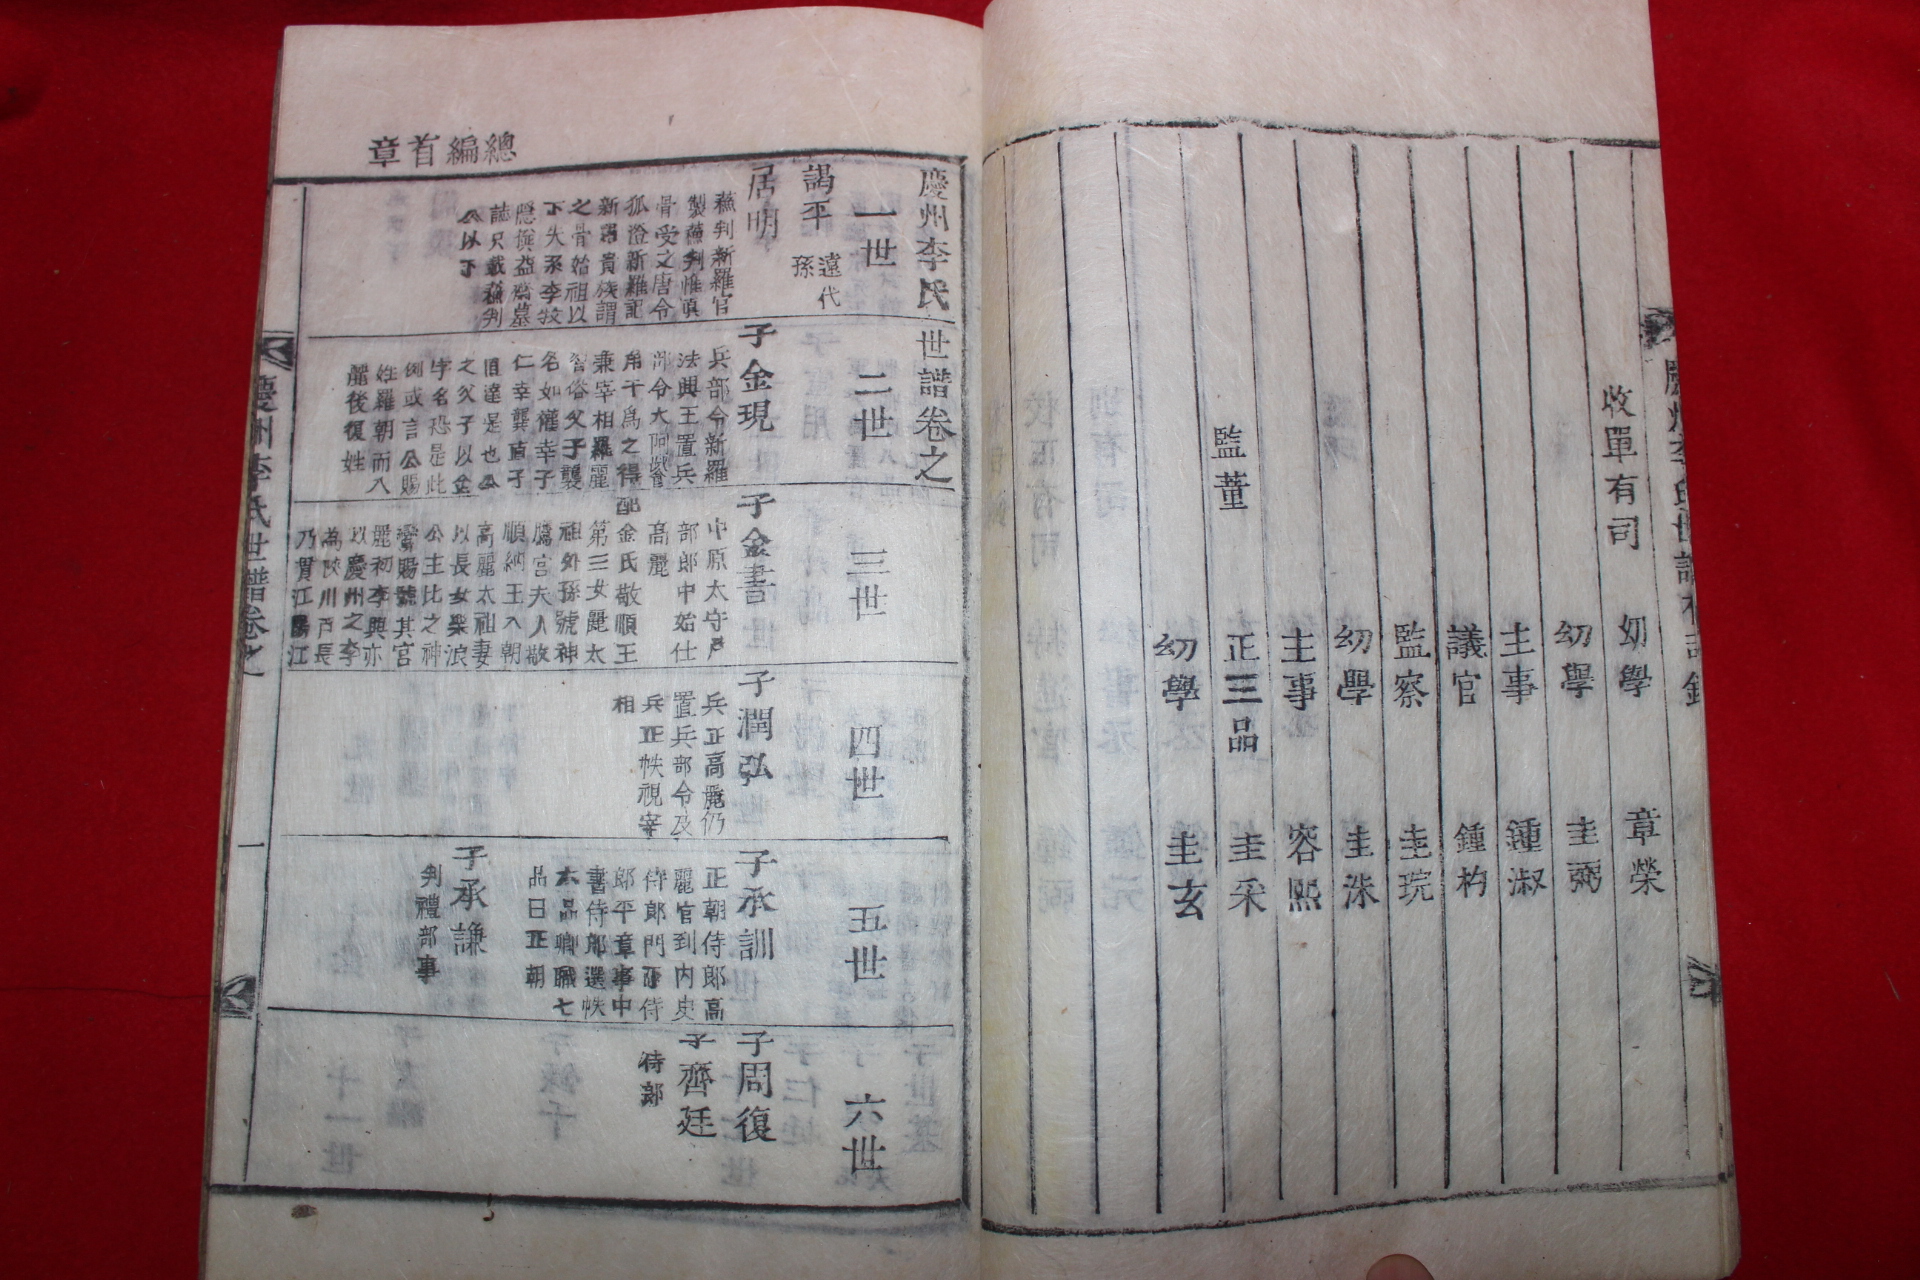 收單有司 幼學 章榮
幼學 圭弼
主事 鍾淑
議官 鍾杓
監察 圭琓
幼學 圭洙
主事 容熙
監董 正三品 圭采
幼學 圭玄
總編首章
慶州李氏世譜卷之
一世
謁平 遠代孫
居明
蘓判新羅官
製蘓判惟眞
骨受之唐令
狐澄新羅記
新羅貴族謂
之骨始祖以
下失系李牧
隱撰益齋墓
誌只載蘓判
公以下
二世
子金現
兵部令新羅
法興王置兵
部令大阿飡
角干爲之得
兼宰相羅麗
習俗父子襲
名如權幸子
仁幸龔直子
直達是也公
之父子以金
字名恐是此
例或言公賜
姓羅朝而入
麗後復姓
三世
子金書
中原太守戶
部郎中始仕
高麗
配金氏敬順王
第三女麗太
祖外孫號神
鸞宮夫人敬
順納王入朝
高麗太祖妻
以長女樂浪
公主比之神
鸞賜號其宮
麗初李興亦
以慶州之李
為陜川戶長
乃貫江陽江
四世
子潤弘
兵正高麗仍
置兵部令及
兵正帙視宰
相
五世
子承訓
正朝侍郎高
麗官到内史
侍郎門下侍
郎平章事中
書侍郎選帙
六品卿職七
品曰正朝
子承謙
判禮部事
六世
子周復
子齊廷
侍郎
慶州李氏世譜卷之
一